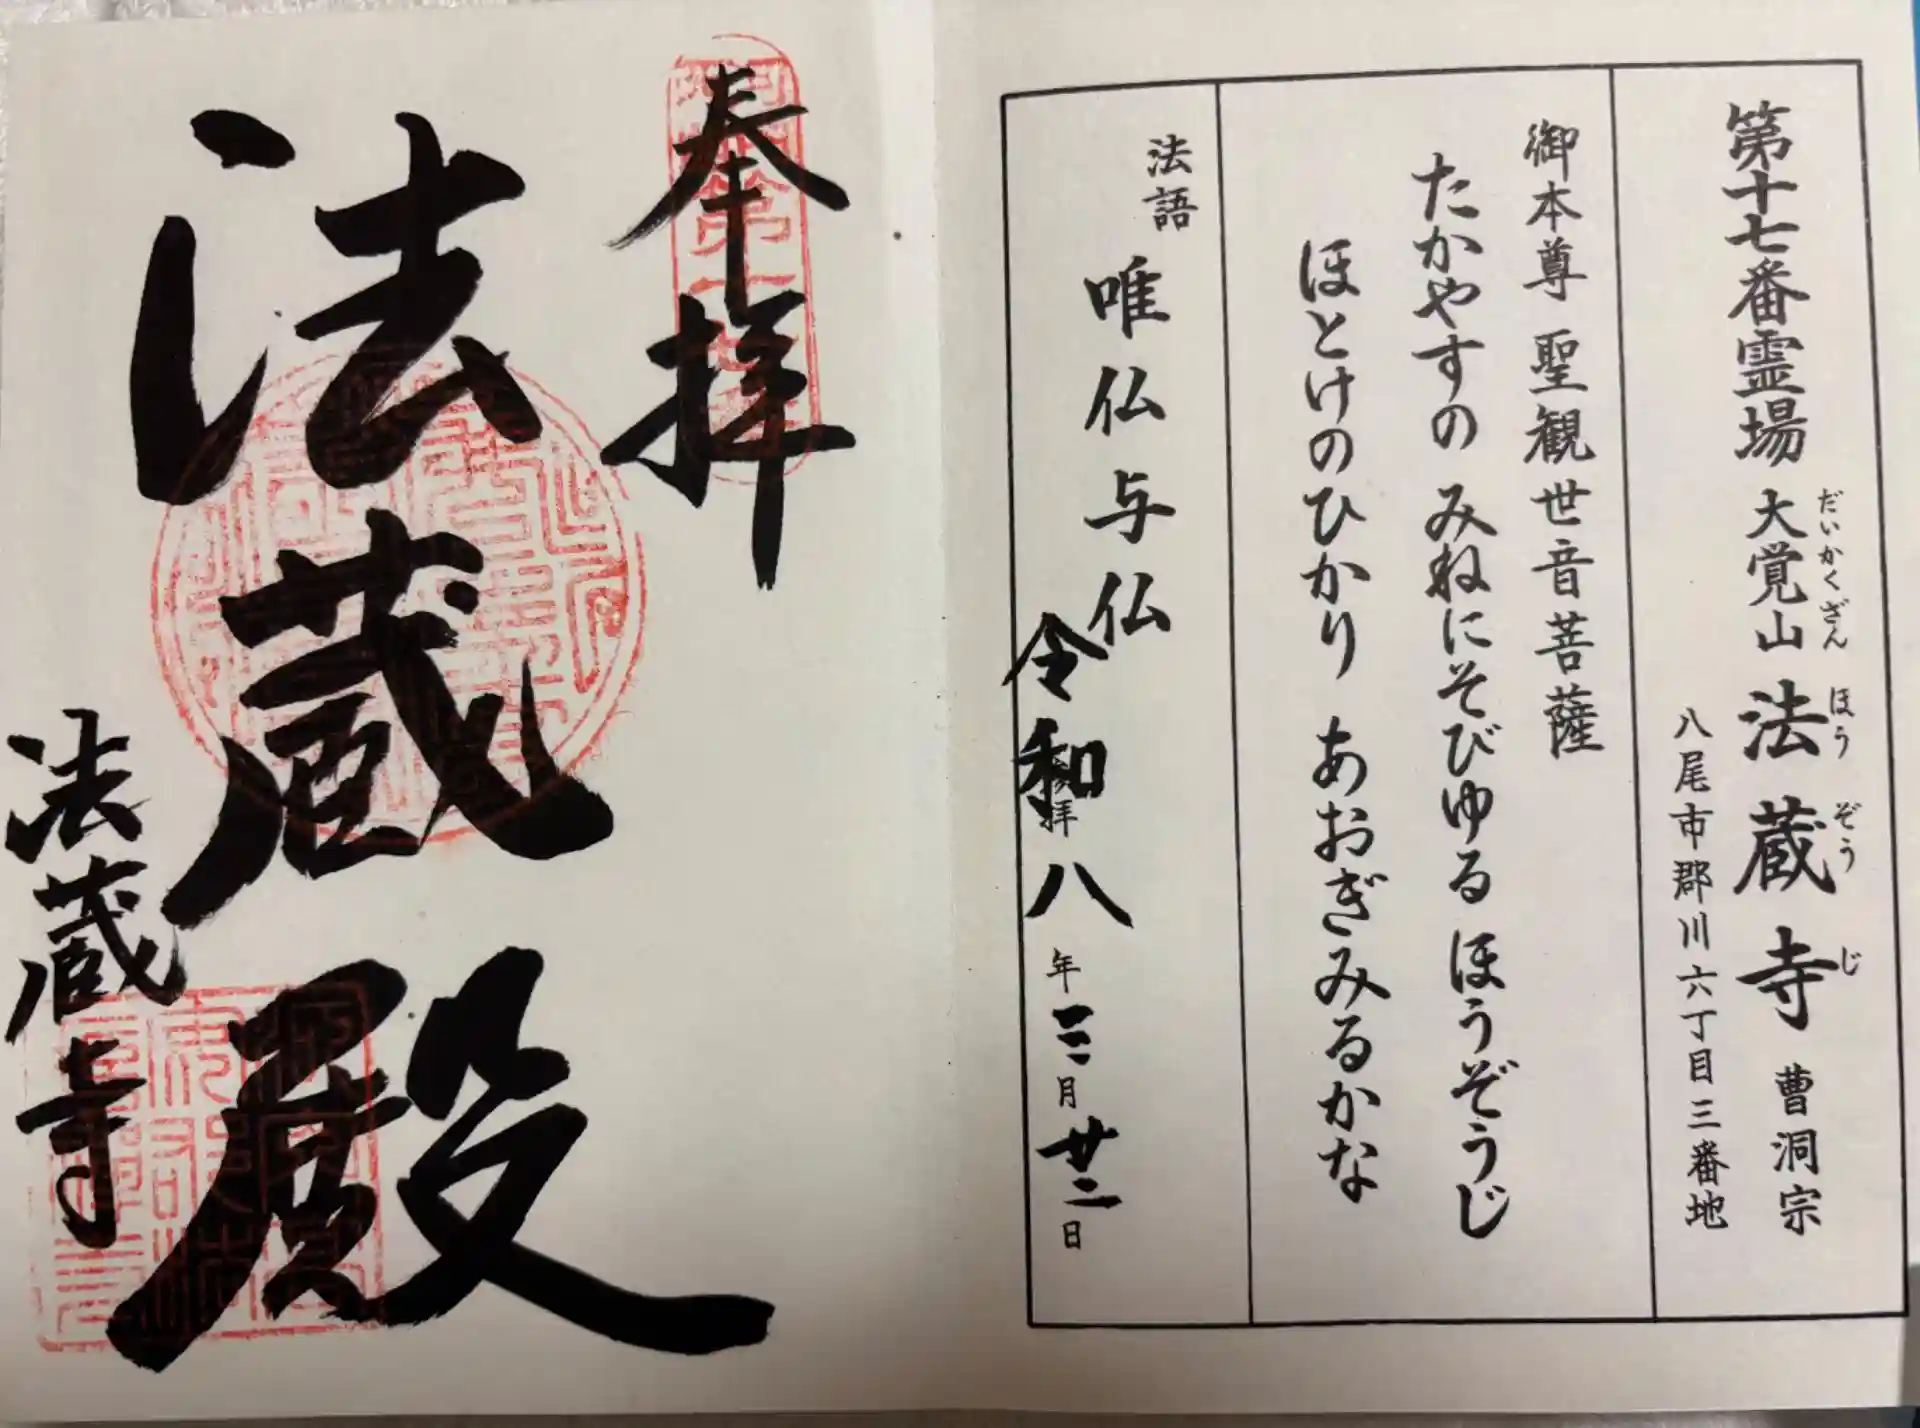 第十七番霊場 大覚山 法蔵寺 曹洞宗
だいかくざん ほうぞうじ
八尾市郡川六丁目三番地
御本尊 聖観世音菩薩
たかやすの みねにそびゆる ほうぞうじ
ほとけのひかり あおぎみるかな
法語
唯仏与仏
令和八年三月廿二日
拝
奉拝
法蔵殿
法蔵寺